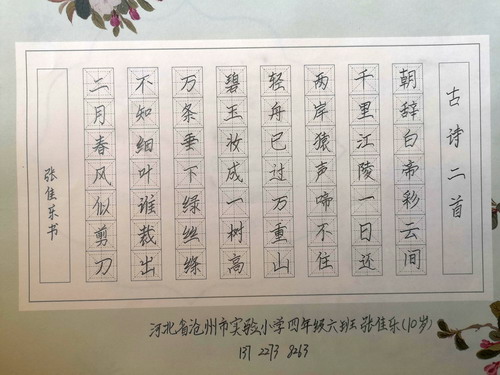 古诗二首
朝辞白帝彩云间
千里江陵一日还
两岸猿声啼不住
轻舟已过万重山
碧玉妆成一树高
万条垂下绿丝绦
不知细叶谁裁出
二月春风似剪刀
张佳乐书
河北省沧州市实验小学四年级六班张佳乐(10岁)
137 2273 8263